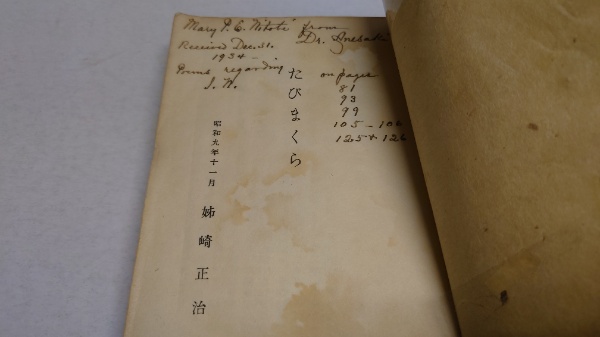 Mary P. E. Nitobe from
Dr. Anesaki
Received Dec. 31.
1934 -
Poems regarding on pages
I. N. 81
93
99
105 - 106
125 & 126
たびまくら
昭和九年十一月
姉崎正治